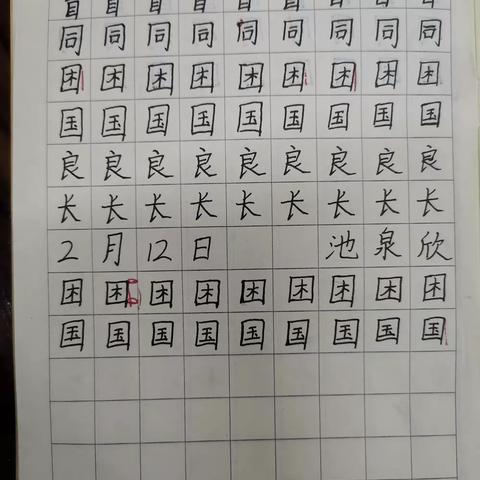 同同同同同同同同同
困困困困困困困困困
国国国国国国国国国
良良良良良良良良良
长长长长长长长长长
2月12日 池泉欣
困困困困困困困困困
国国国国国国国国国